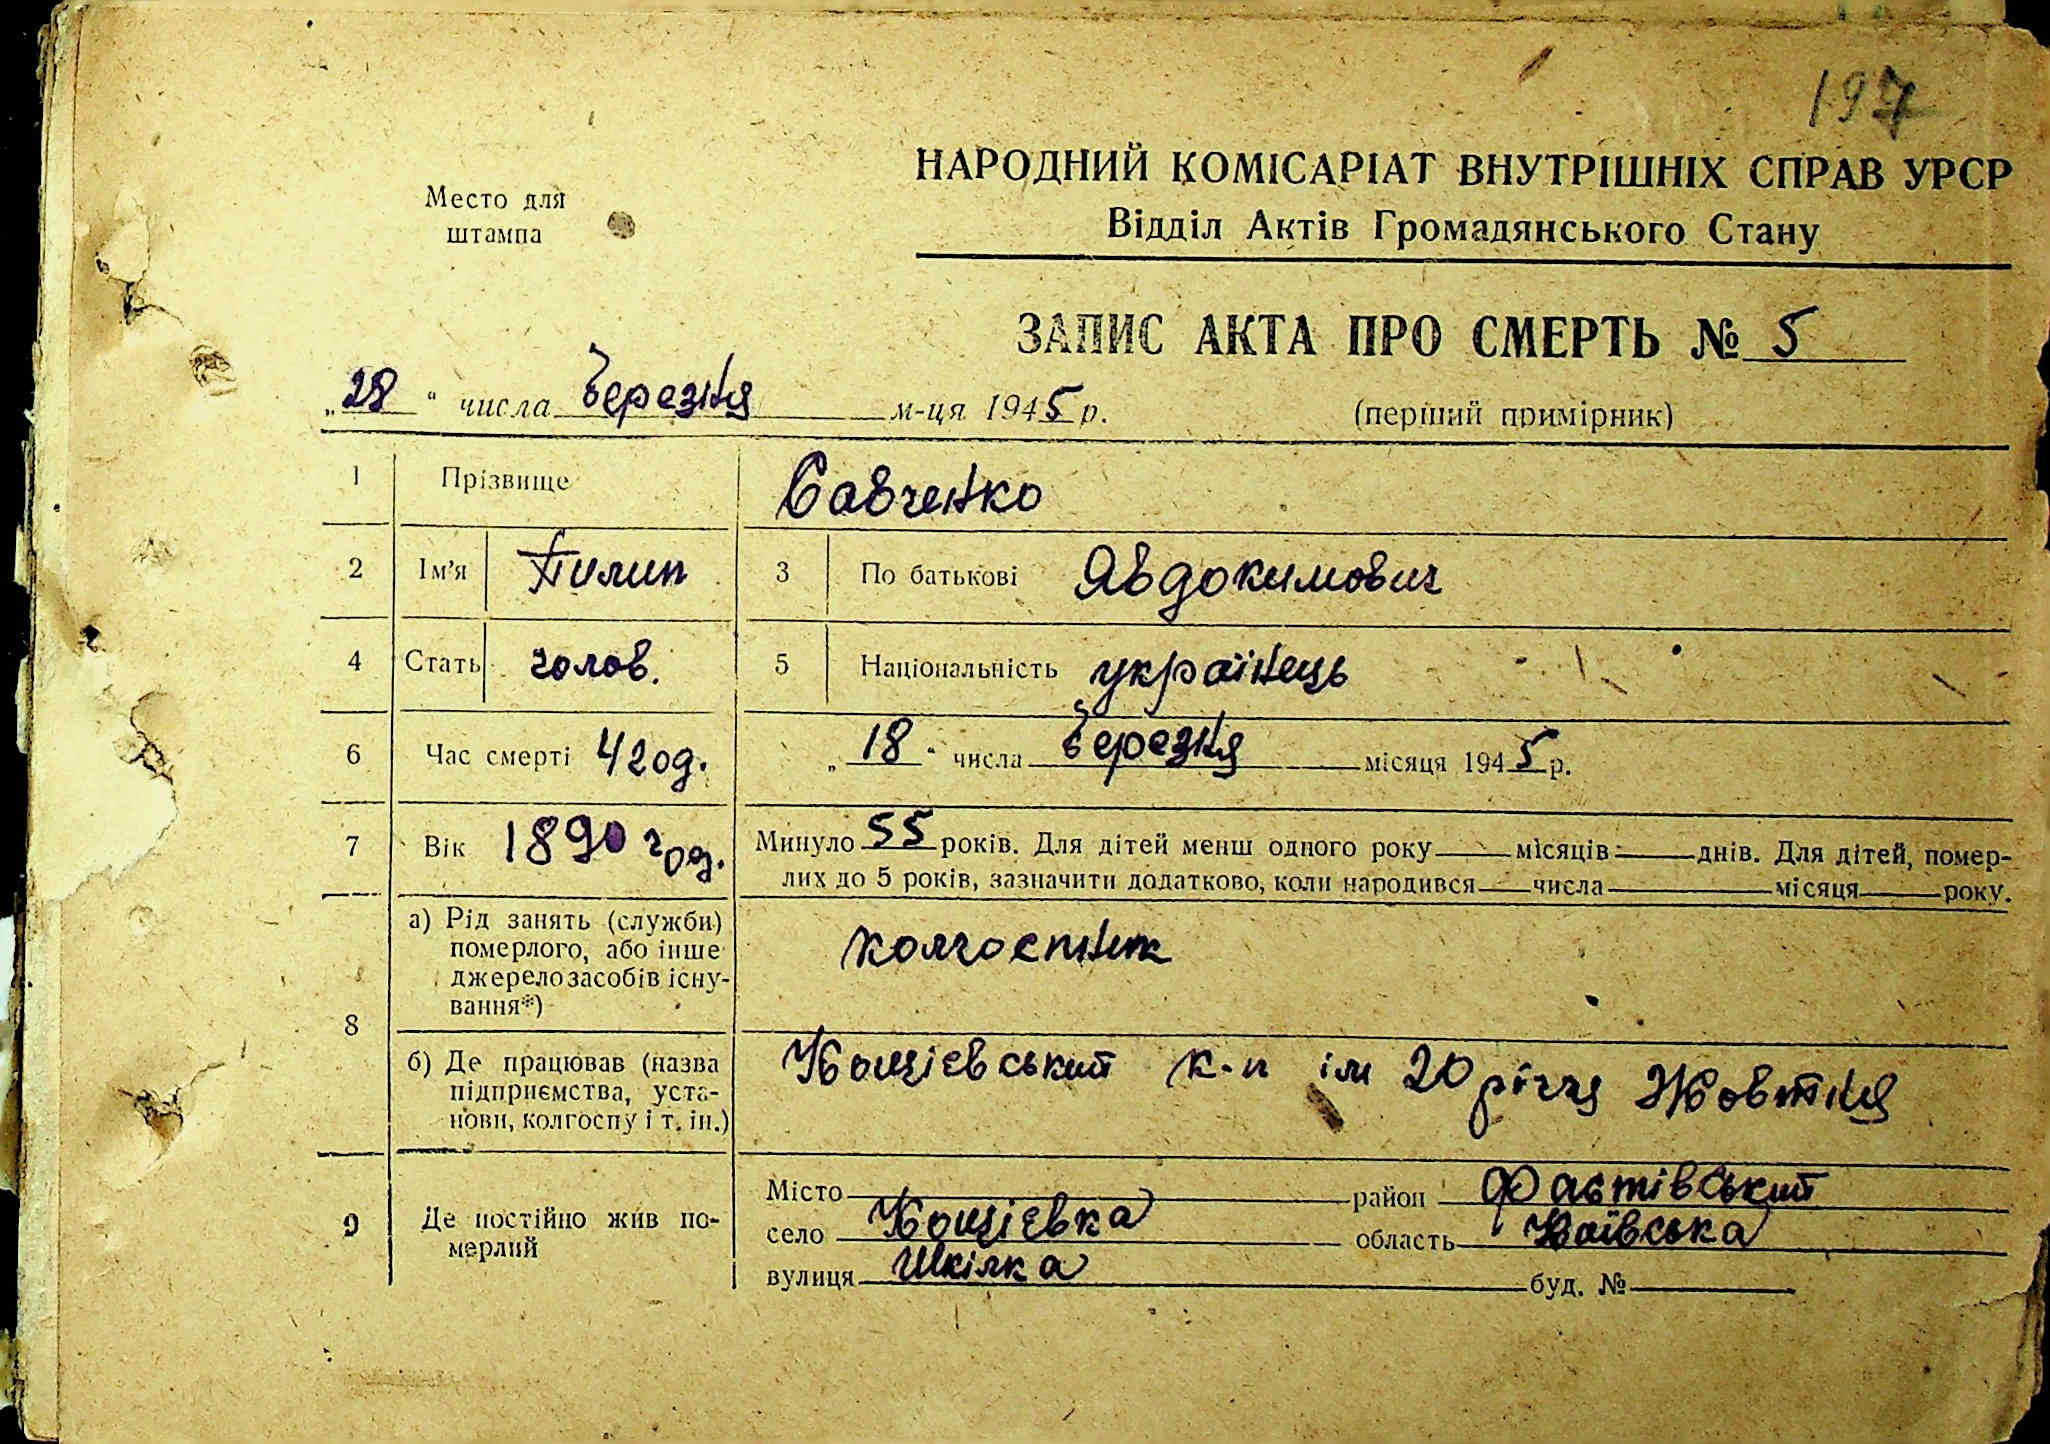 197
НАРОДНИЙ КОМІСАРІАТ ВНУТРІШНІХ СПРАВ УРСР
Место для
штампа
Відділ Актів Громадянського Стану
ЗАПИС АКТА ПРО СМЕРТЬ № 5
„28“ числа березня м-ця 1945 р.
(перший примірник)
1 Прізвище Савченко
2 Ім’я Пилип 3 По батькові Явдокимович
4 Стать чолов. 5 Національність українець
6 Час смерті 4 20д. „18“ числа березня місяця 1945 р.
7 Вік 1890 год. Минуло 55 років. Для дітей менш одного року місяців днів. Для дітей, помер-
лих до 5 років, зазначити додатково, коли народився числа місяця року.
8
а) Рід занять (служби)
померлого, або інше
джерело засобів існу-
вання*)
колгоспник
б) Де працював (назва
підприємства, уста-
нови, колгоспу і т. ін.)
Кощіевський к-п ім 20 річчя Жовтня
9 Де постійно жив по-
мерлий
Місто район Фастівський
село Кощіевка область Київська
вулиця Шкілка буд. №